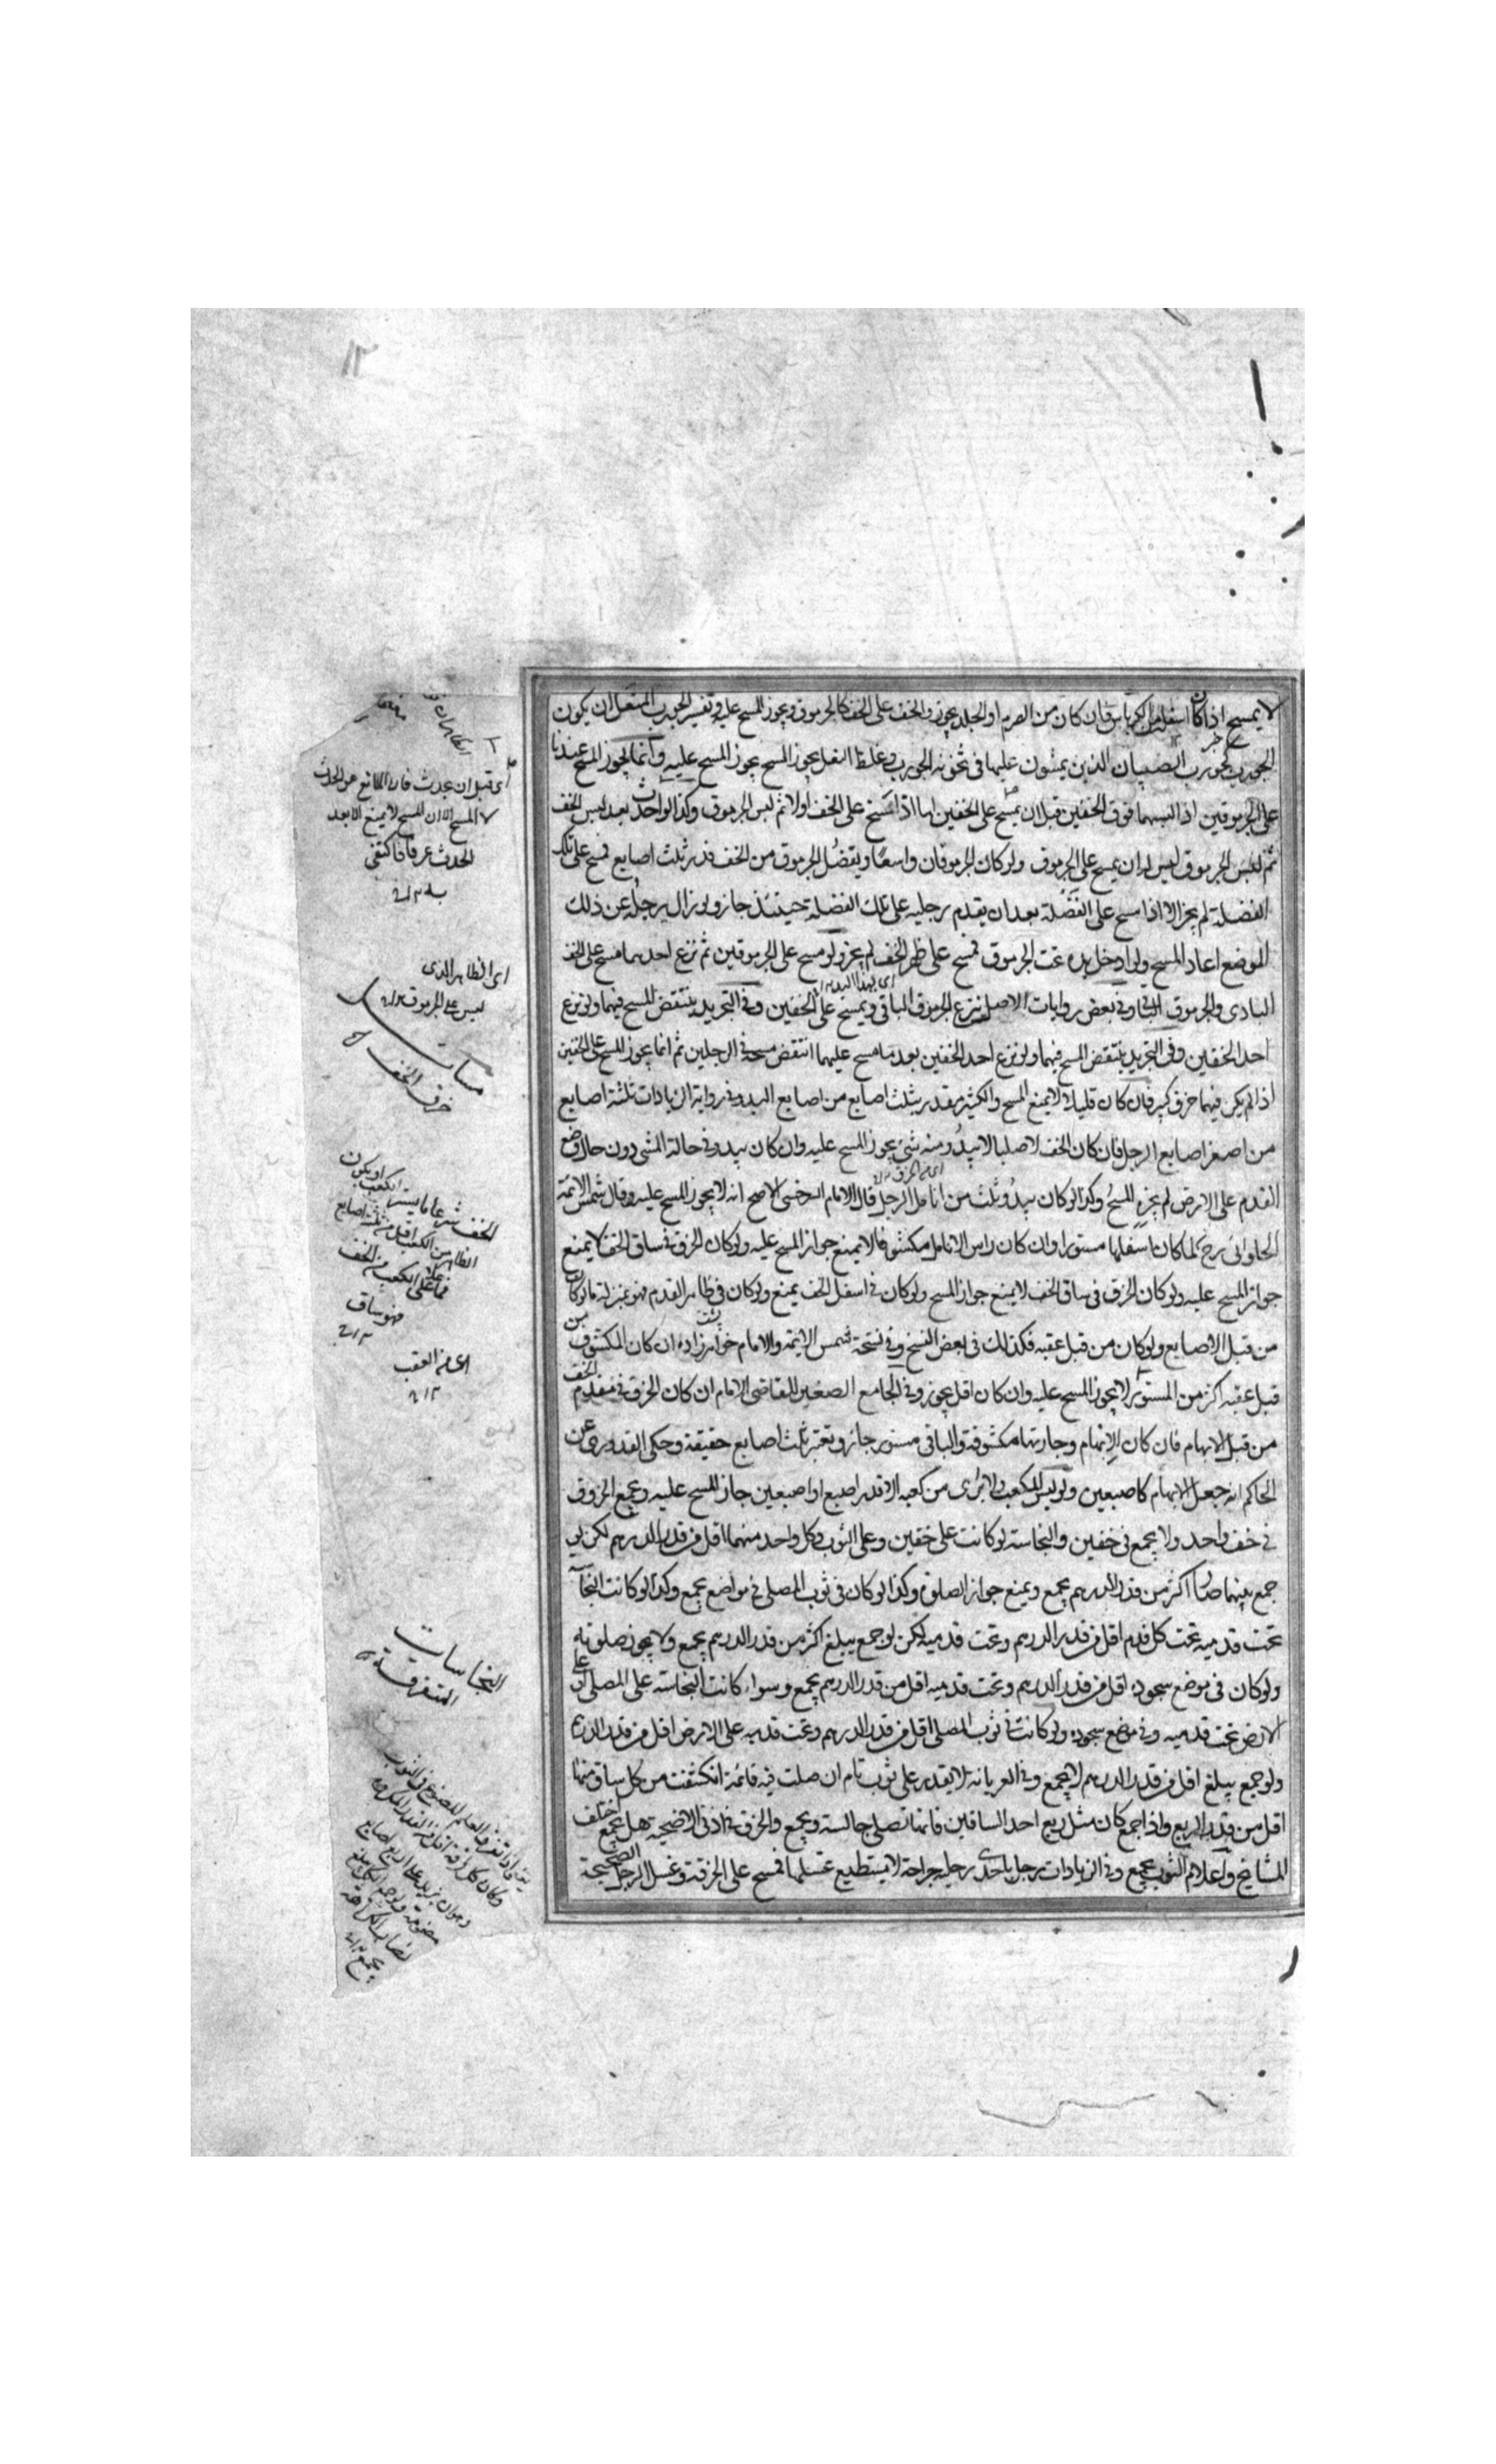 لا يمسح اذا كان اسفلها من الكرباس فان كان من الصرم او الجلد يجوز والخف على الخف كالجرموق ويجوز المسح عليه وتفسير الجورب المنعل ان يكون
الجورب كجورب الصبيان الذين يمشون عليها في ثخونة الجورب وغلظ النعل يجوز المسح عليه وانما يجوز المسح عندنا
على الجرموقين اذا لبسهما فوق الخفين قبل ان يمسح على الخفين اما اذا مسح على الخف اولا ثم لبس الجرموق وكذا لو احدث بعد لبس الخف
ثم لبس الجرموق ليس له ان يمسح على الجرموق ولو كان الجرموقان واسعا ويفضل الجرموق من الخف قدر ثلث اصابع فمسح على تلك
الفضلة لم يجز الا اذا مسح على الفضلة بعد ان يقدم رجليه على تلك الفضلة حينئذ جاز ولو زال رجله عن ذلك
الموضع اعاد المسح ولو ادخل يده تحت الجرموق فمسح على ظهر الخف لم يجز ولو مسح على الجرموقين ثم نزع احدهما مسح على الخف
البادى والجرموق الباقى وفي بعض روايات الاصل ينزع الجرموق الباقي ويمسح على الخفين وفي التجريد ينتقض المسح فيهما ولو نزع
احد الخفين وفي التجريد ينتقض المسح فيهما ولو نزع احد الخفين بعد ما مسح عليهما انتقض مسحه في الرجلين ثم انما يجوز المسح على الخفين
اذا لم يكن فيهما خرق كبير فان كان قليلا لا يمنع المسح والكثير مقدر بثلث اصابع من اصابع اليد وفي رواية الزيادات ثلثة اصابع
من اصغر اصابع الرجل فان كان الخف لاصلبا لا يبدو منه شئ يجوز المسح عليه وان كان يبدو في حالة المشي دون حال وضع
القدم على الارض لم يجز المسح وكذا لو كان يبدو ثلث من انامل الرجل قال الامام السرخسى الاصح انه لا يجوز المسح عليه وقال شمس الائمة
الحلوانى رح كما كان اسفلها مستورا وان كان راس الانامل مكشوفا لا يمنع جواز المسح عليه ولو كان الخرق في ساق الخف لا يمنع
جواز المسح عليه ولو كان الخرق في ساق الخف لا يمنع جواز المسح ولو كان في اسفل الخف يمنع ولو كان في ظاهر القدم فهو بمنزلة ما لو كان
من قبل الاصابع ولو كان من قبل عقبه فكذلك في بعض النسخ وفي نسخة شمس الائمة والامام خواهر زاده ان كان المكشوف من
قبل عقبه اكثر من المستور لا يجوز المسح عليه وان كان اقل يجوز وفي الجامع الصغير للقاضي الامام ان كان الخرق في مقدم الخف
من قبل الابهام فان كان الابهام وجارتها مكشوفة والباقي مستور جاز ويعتبر ثلث اصابع حقيقة وحكى القدورى عن
الحاكم انه جعل الابهام كاصبعين ولو لبس المكعب ولا يرى من كعبه الا قدر اصبع او اصبعين جاز المسح عليه ويجمع الخروق
في خف واحد ولا يجمع في خفين والنجاسة لو كانت على خفين وعلى الثوب وكل واحد منهما اقل من قدر الدرهم لكن لو
جمع بينهما صار اكثر من قدر الدرهم يجمع ويمنع جواز الصلوة وكذا لو كان في ثوب المصلي في مواضع يجمع وكذا لو كانت النجاسة
تحت قدميه تحت كل قدم اقل من قدر الدرهم وتحت قدميه لكن لو جمع يبلغ اكثر من قدر الدرهم يجمع ولا يجوز صلوته
ولو كان في موضع سجوده اقل من قدر الدرهم وتحت قدميه اقل من قدر الدرهم يجمع وسواء كانت النجاسة على المصلى او على
الارض تحت قدميه وفي موضع سجوده ولو كانت في ثوب المصلى اقل من قدر الدرهم وتحت قدميه على الارض اقل من قدر الدرهم
ولو جمع يبلغ اقل من قدر الدرهم لا يجمع وفي العريانة لا يقدر على ثوب تام ان صلت فيه قائمة انكشفت من كل ساق منها
اقل من قدر الربع واذا جمع كان مثل ربع احد الساقين فانها تصلي جالسة ويجمع والخرق في اذني الاضحية هل يجمع اختلف
المشايخ واعلام الثوب يجمع وفي الزيادات رجل باحدى رجليه جراحة لا يستطيع غسلها فمسح على الخرقة وغسل الرجل الصحيحة
اى قبل ان يحدث فان المانع من الحدث
لا المسح الا ان المسح لا يمنع الا بعد
الحدث عرفا فاكتفى
به
اى الظاهر الذى
ليس على الجرموق
مسائل
خرق الخف
الخف شرعا ما يستر الكعب او يكون
الظاهر من الكعب اقل من ثلث اصابع
فما على الكعب من الخف
فهو ساق
اى من العقب
النجاسات
المتفرقة